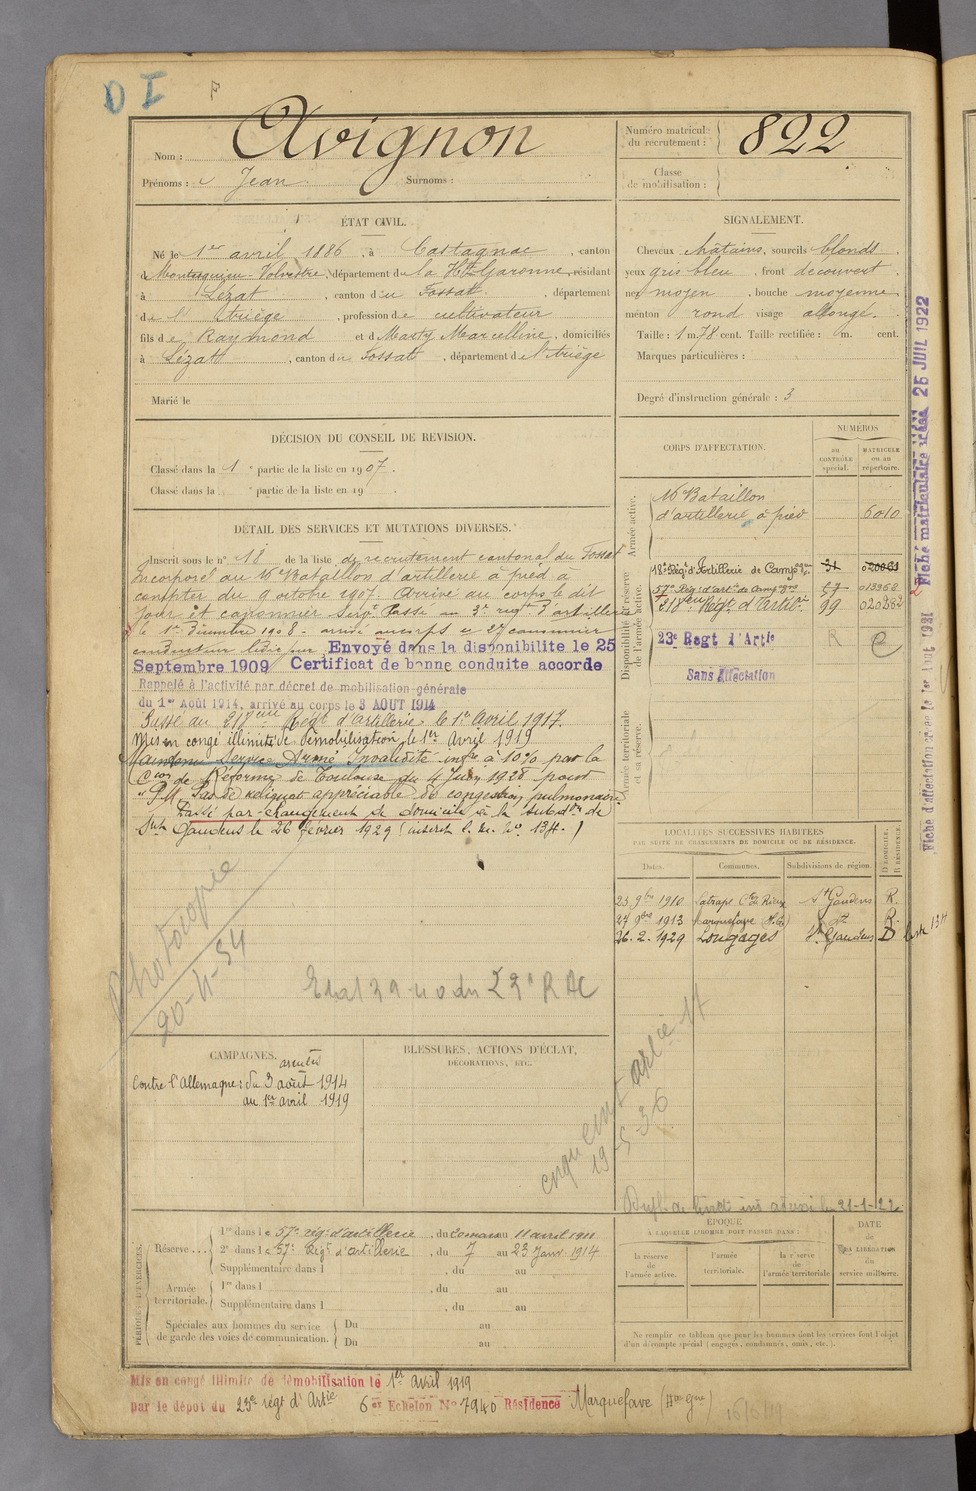 D I F
Nom : Avignon
Prénoms : Jean Surnoms :
Numéro matricule du recrutement : 822
Classe de mobilisation :
ÉTAT CIVIL.
Né le 1er avril 1886, à Castagnac, canton
de Montesquieu-Volvestre, département de la Hte Garonne, résidant
à Lézat, canton du Fossat, département
de l'Ariège, profession de cultivateur
fils de Raymond et de Marty Marcelline, domiciliés
à Lézat, canton du Fossat, département de l'Ariège
Marié le
SIGNALEMENT.
Cheveux châtains, sourcils blonds
yeux gris bleu, front découvert,
nez moyen, bouche moyenne
menton rond visage allongé.
Taille : 1 m. 78 cent. Taille rectifiée : m. cent.
Marques particulières :
Degré d'instruction générale : 3
DÉCISION DU CONSEIL DE REVISION.
Classé dans la 1e partie de la liste en 1907.
Classé dans la e partie de la liste en 19
DÉTAIL DES SERVICES ET MUTATIONS DIVERSES.
Inscrit sous le n° 18 de la liste de recrutement cantonal du Fossat
Incorporé au 16e Bataillon d'artillerie à pied à
compter du 9 octobre 1907. Arrivé au corps le dit
jour et canonnier servt. Passé au 3e regt d'artillerie
le 1er décembre 1908 - arrivé au corps et 2e canonnier
conducteur ledit jour Envoyé dans la disponibilite le 25
Septembre 1909 Certificat de bonne conduite accorde
Rappelé à l'activité par décret de mobilisation générale
du 1er Août 1914, arrivé au corps le 3 AOUT 1914
Passé au 218ème Régt d'Artillerie le 1er Avril 1917.
Mis en congé illimité de Démobilisation le 1er Avril 1919
Maintenu Service Armé Invalidité infre à 10% par la
Con de Réforme de Toulouse du 4 Juin 1928 pour
"Pas de reliquat appréciable de congestion pulmonaire
Passé par changement de domicile à la subdon de
St Gaudens le 26 février 1929
CORPS D'AFFECTATION.
NUMÉROS
au CONTRÔLE spécial.
MATRICULE ou au répertoire.
Armée active.
16e Bataillon
d'artillerie à pied 6010
Disponibilité et réserve de l'armée active.
18e Régt d'Artillerie de Campagne 31
57e Rég. d'artie de Campagne 57 013968
218ème Régt d'Artie 99 020282
23e Regt d'Artie R
Sans Affectation
Armée territoriale et sa réserve.
Fiché matriculaire 25 JUIL 1922
Fiche d'affectation
LOCALITÉS SUCCESSIVES HABITÉES
PAR SUITE DE CHANGEMENTS DE DOMICILE OU DE RÉSIDENCE.
Dates. Communes. Subdivisions de région. D. DOMICILE. R. RÉSIDENCE.
23 9bre 1910 Latrape Con de Rieux St Gaudens R.
27 9bre 1913 Marquefave (H.G.) dt R.
26.2.1929 Longages St Gaudens D
Photocopie
20-11-54
CAMPAGNES.
Contre l'Allemagne : du 3 août 1914
au 1er avril 1919
BLESSURES, ACTIONS D'ÉCLAT,
DÉCORATIONS, ETC.
19-5-36
PÉRIODES D'EXERCICES.
Réserve
1re dans le 57e rég. d'artillerie, du au 11 avril 1911
2e dans le 57e Régt d'Artillerie, du 7 au 23 Janv. 1914
Supplémentaire dans l , du au
Armée territoriale.
1re dans l , du au
Supplémentaire dans l , du au
Spéciales aux hommes du service de garde des voies de communication.
Du au
Du au
ÉPOQUE
À LAQUELLE L'HOMME DOIT PASSER DANS :
la réserve de l'armée active.
l'armée territoriale.
la réserve de l'armée territoriale
DATE DE LA LIBÉRATION du service militaire.
Ne remplir ce tableau que pour les hommes dont les services font l'objet
d'un décompte spécial (engagés, condamnés, omis, etc.).
Mis en congé illimité de démobilisation le 1er Avril 1919
par le dépôt du 23e régt d'Artie 6e Echelon N° 7940 Résidence Marquefave (Hte Gne)